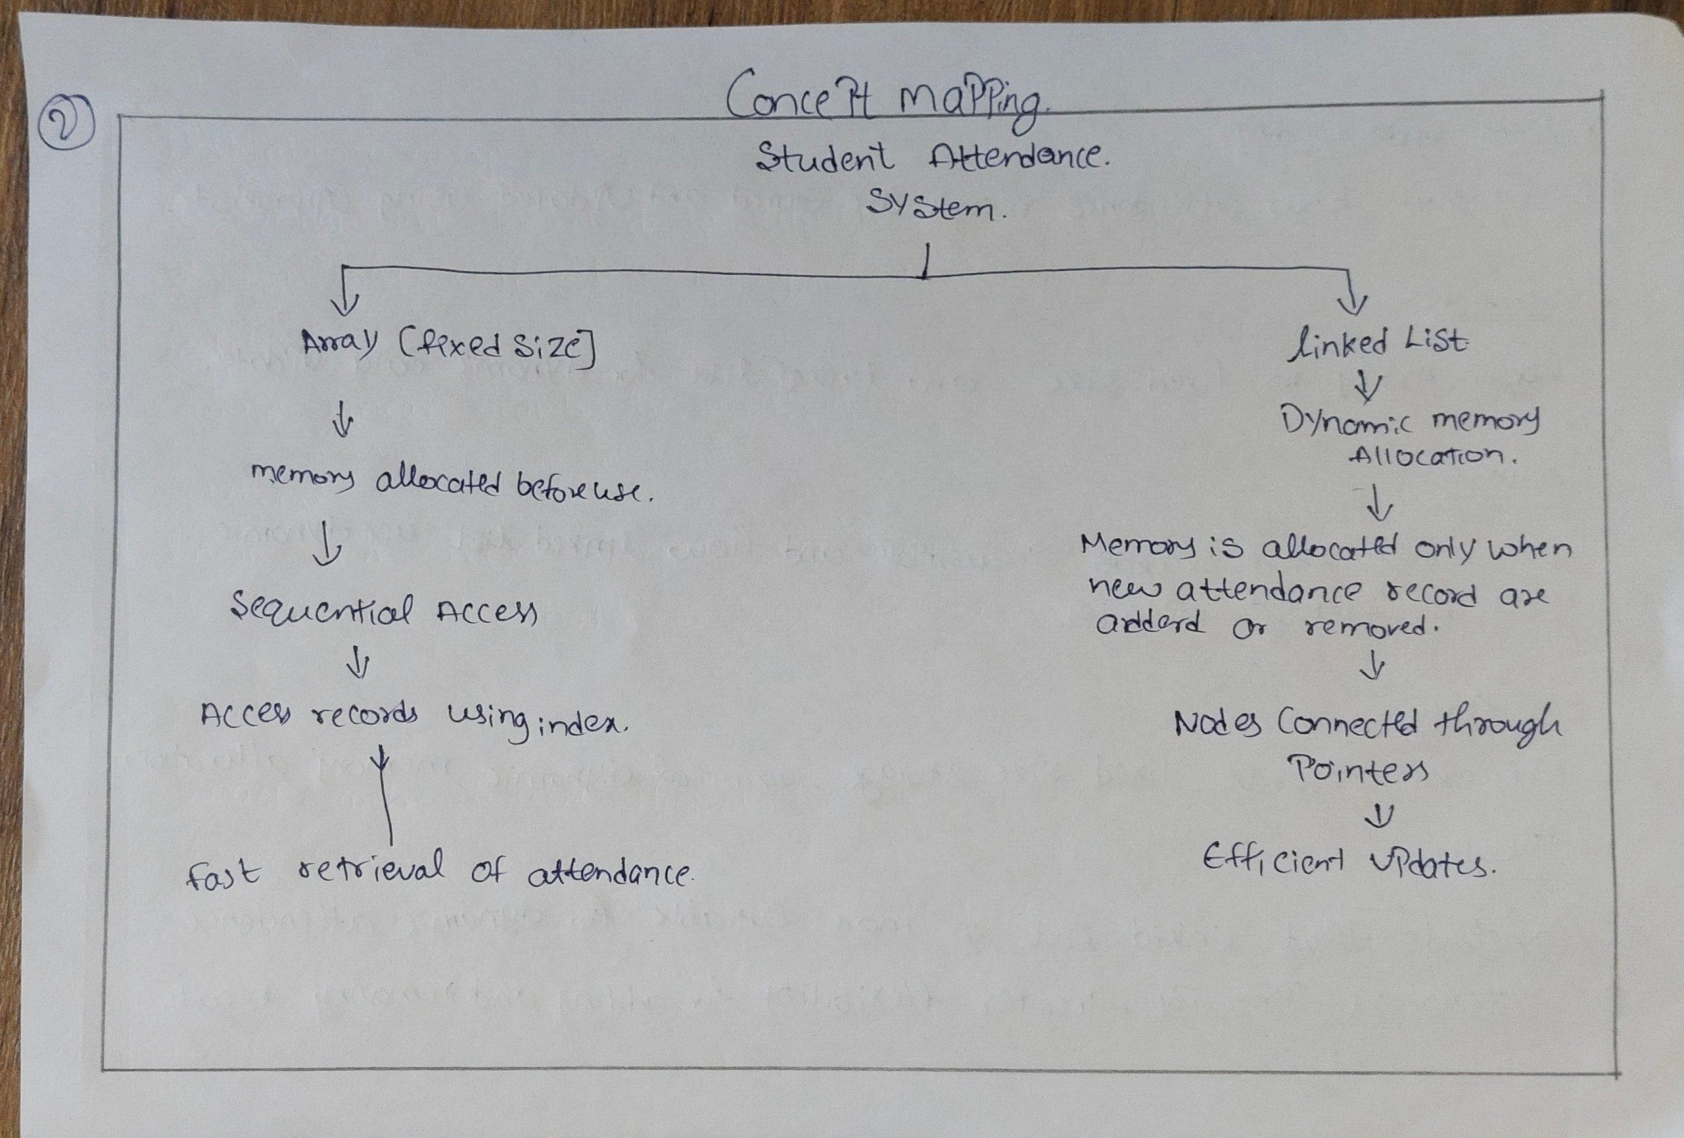 2
Concept mapping.
Student Attendance.
System.
Array [fixed size]
memory allocated before use.
Sequential Access
Access records using index.
fast retrieval of attendance.
linked List
Dynamic memory
Allocation.
Memory is allocated only when
new attendance record are
adderd or removed.
Nodes Connected through
Pointers
Efficient Updates.